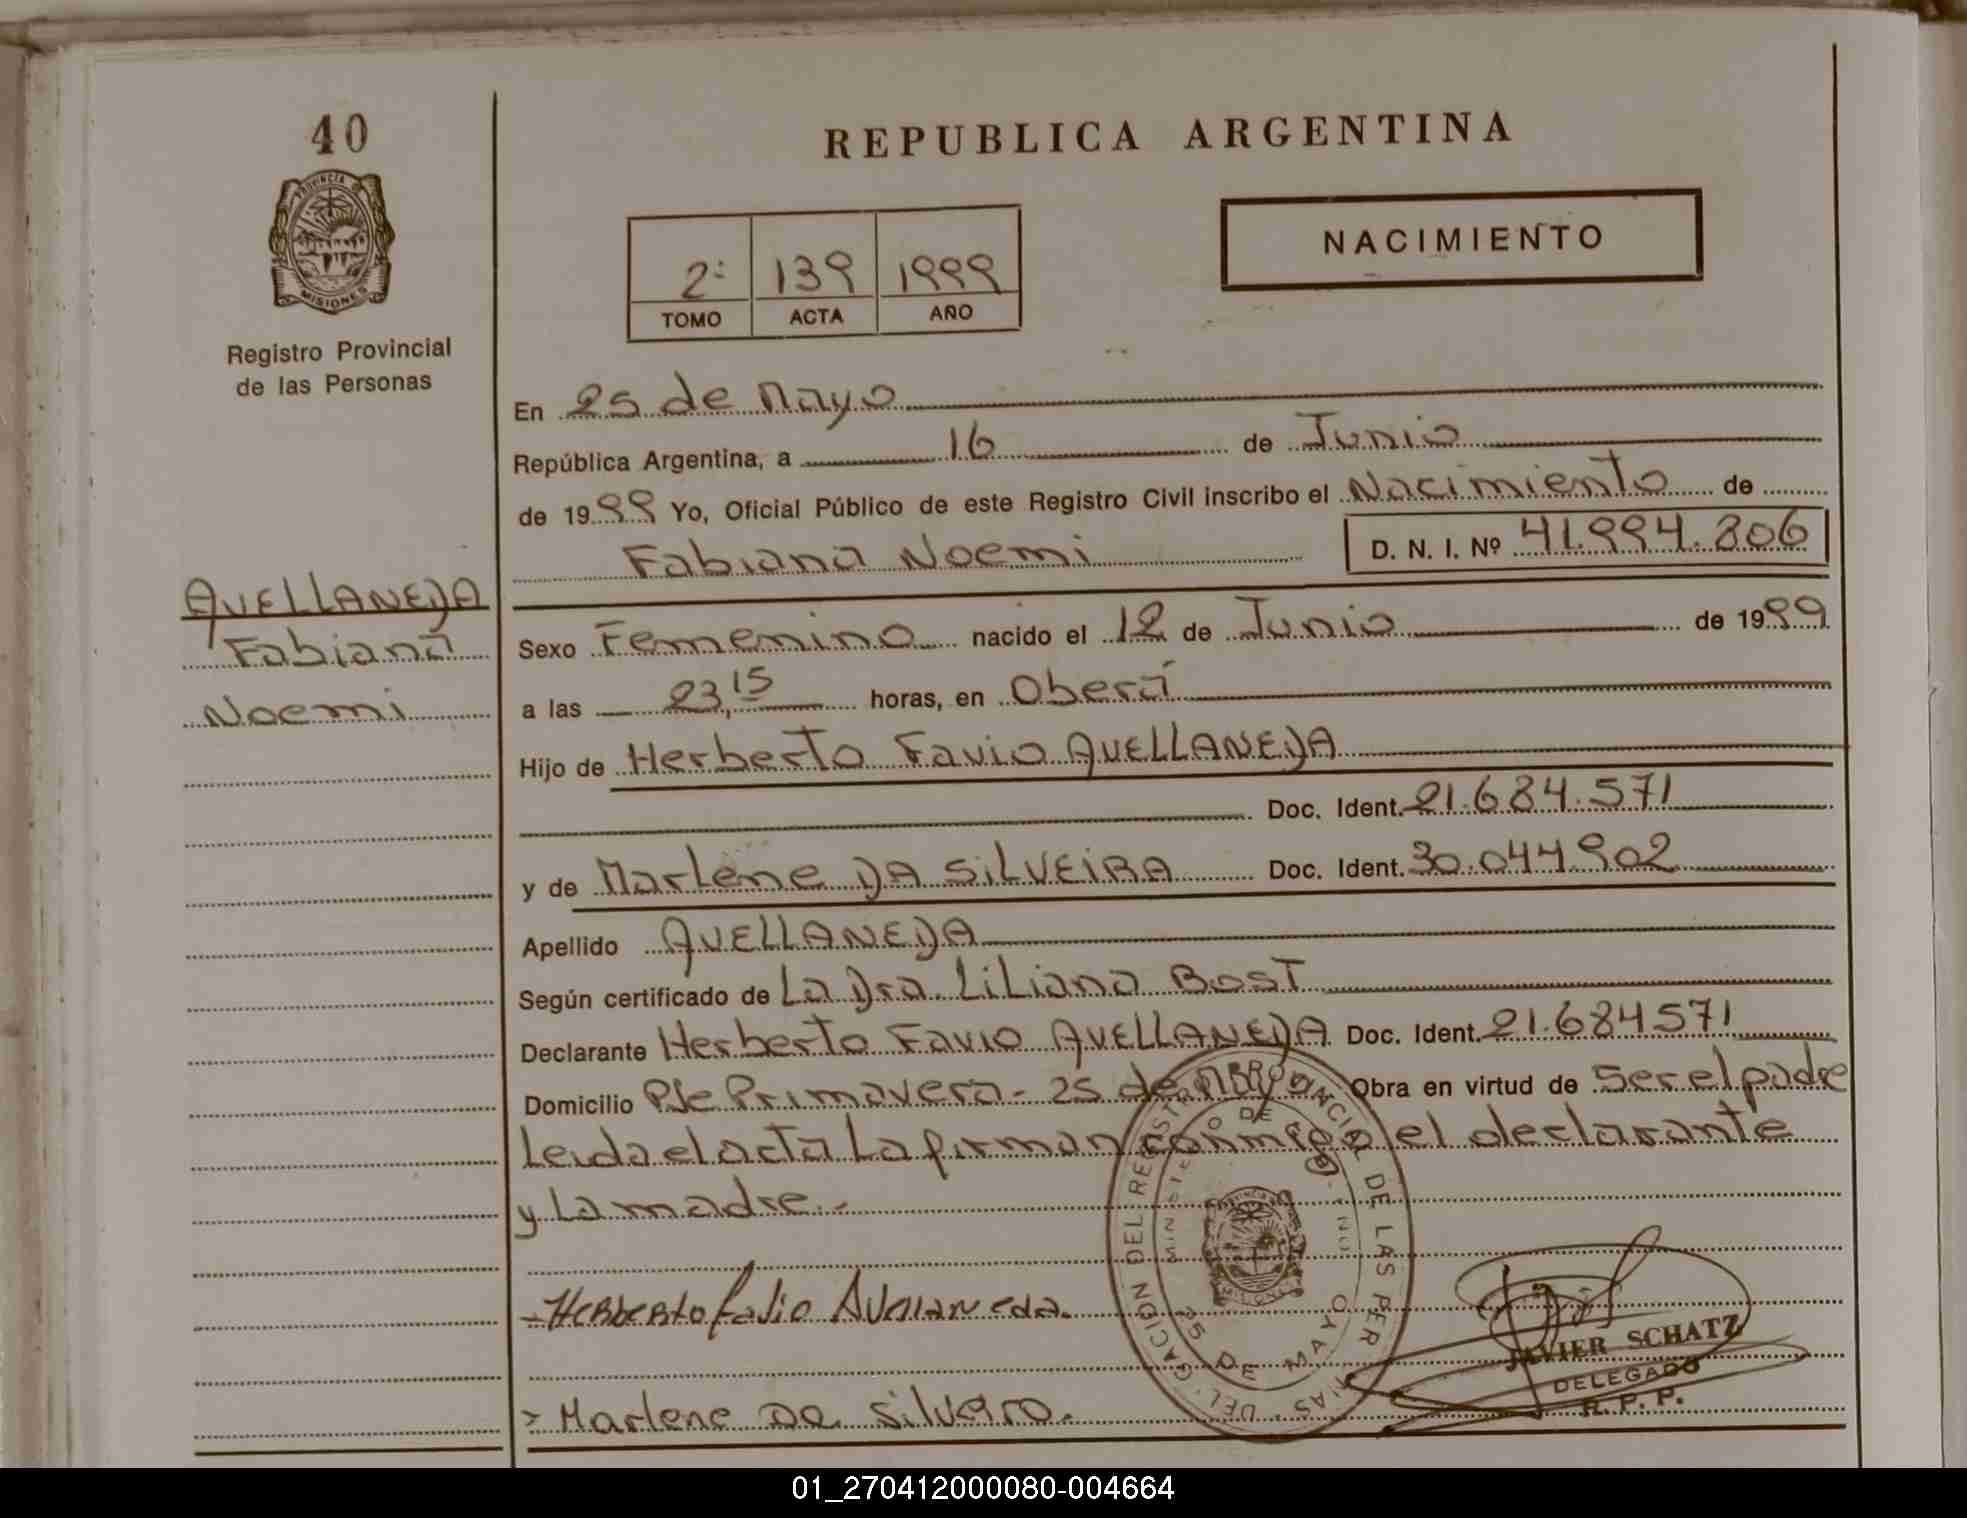 40
PROVINCIA DE
MISIONES
Registro Provincial
de las Personas
AVELLANEDA
Fabiana
Noemi
REPUBLICA ARGENTINA
2º 139 1999
TOMO ACTA AÑO
NACIMIENTO
En 25 de Mayo
República Argentina, a 16 de Junio
de 1999 Yo, Oficial Público de este Registro Civil inscribo el Nacimiento de
Fabiana Noemi D. N. I. Nº 41.994.806
Sexo Femenino nacido el 12 de Junio de 1999
a las 23,15 horas, en Oberá
Hijo de Herberto Favio AVELLANEDA
Doc. Ident. 21.684.571
y de Marlene DA SILVEIRA Doc. Ident. 30.044.902
Apellido AVELLANEDA
Según certificado de La Dra. Liliana BOST
Declarante Herberto Favio AVELLANEDA Doc. Ident. 21.684571
Domicilio Pje Primavera - 25 de Mayo Obra en virtud de Ser el padre
Leida el acta La firman conmigo el declarante
y La madre.-
DEL REGISTRO PROVINCIAL DE LAS PER
MINISTERIO DE
MISIONES
25 DE MAYO
- Herberto favio Avellaneda.
JAVIER SCHATZ
DELEGADO
R. P. P.
> Marlene Da Silvero.
01_270412000080-004664